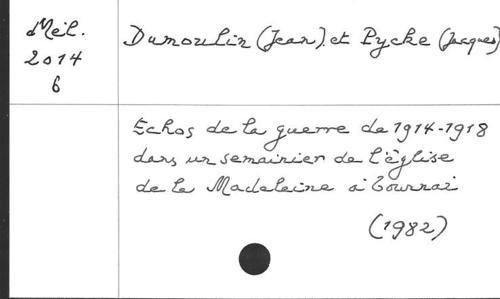 Mél.
2014
6
Dumoulin (Jean) et Pycke (Jacques)
Echos de la guerre de 1914-1918
dans un semainier de l'église
de la Madeleine à Tournai
(1982)